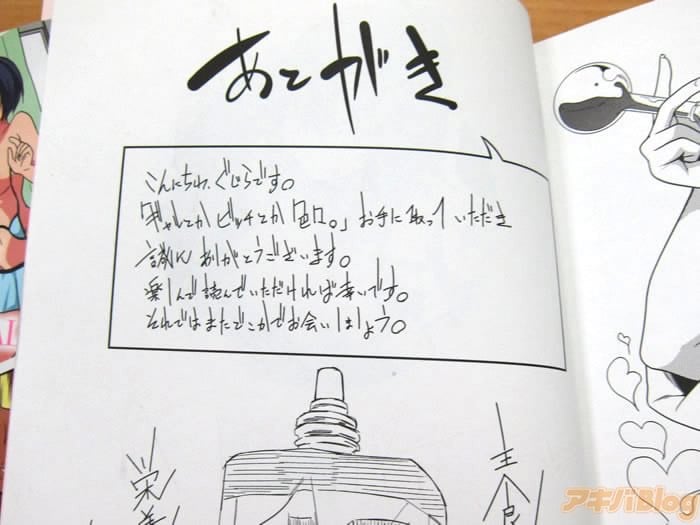 あとがき
こんにちわ、ぐじらです。
「ギャルとかビッチとか色々。」お手に取っていただき
誠にありがとうございます。
楽しんで読んでいただければ幸いです。
それではまたどこかでお会いしましょう。
主食
栄養
アキバBlog